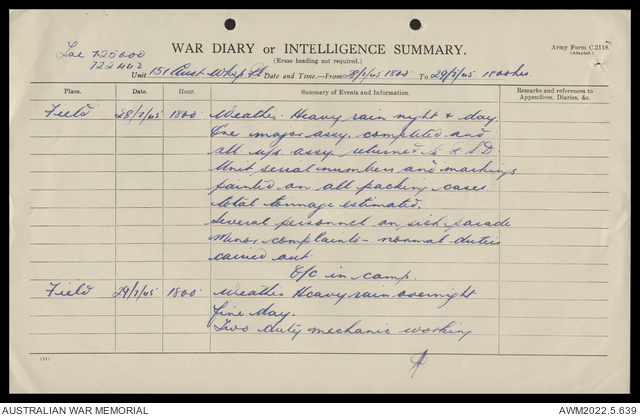 Lae 725000
722442
WAR DIARY or INTELLIGENCE SUMMARY.
(Erase heading not required.)
Army Form C.2118.
(Adapted.)
Unit 151 Aust Wksp Pl Date and Time.—From 28/7/45 1800 To 29/7/45 1800hrs
Place. Date. Hour. Summary of Events and Information. Remarks and references to Appendices, Diaries, &c.
Field 28/7/45 1800 Weather Heavy rain night & day.
One major assy. completed and
all u/s assy. returned to R S D.
Unit serial numbers and markings
painted on all packing cases
total tonnage estimated.
Several personnel on sick parade
Minor complaints - normal duties
carried out
O/C in camp.
Field 29/7/45 1800 Weather Heavy rain overnight
fine day.
Two duty mechanic working
(11)
AUSTRALIAN WAR MEMORIAL
AWM2022.5.639